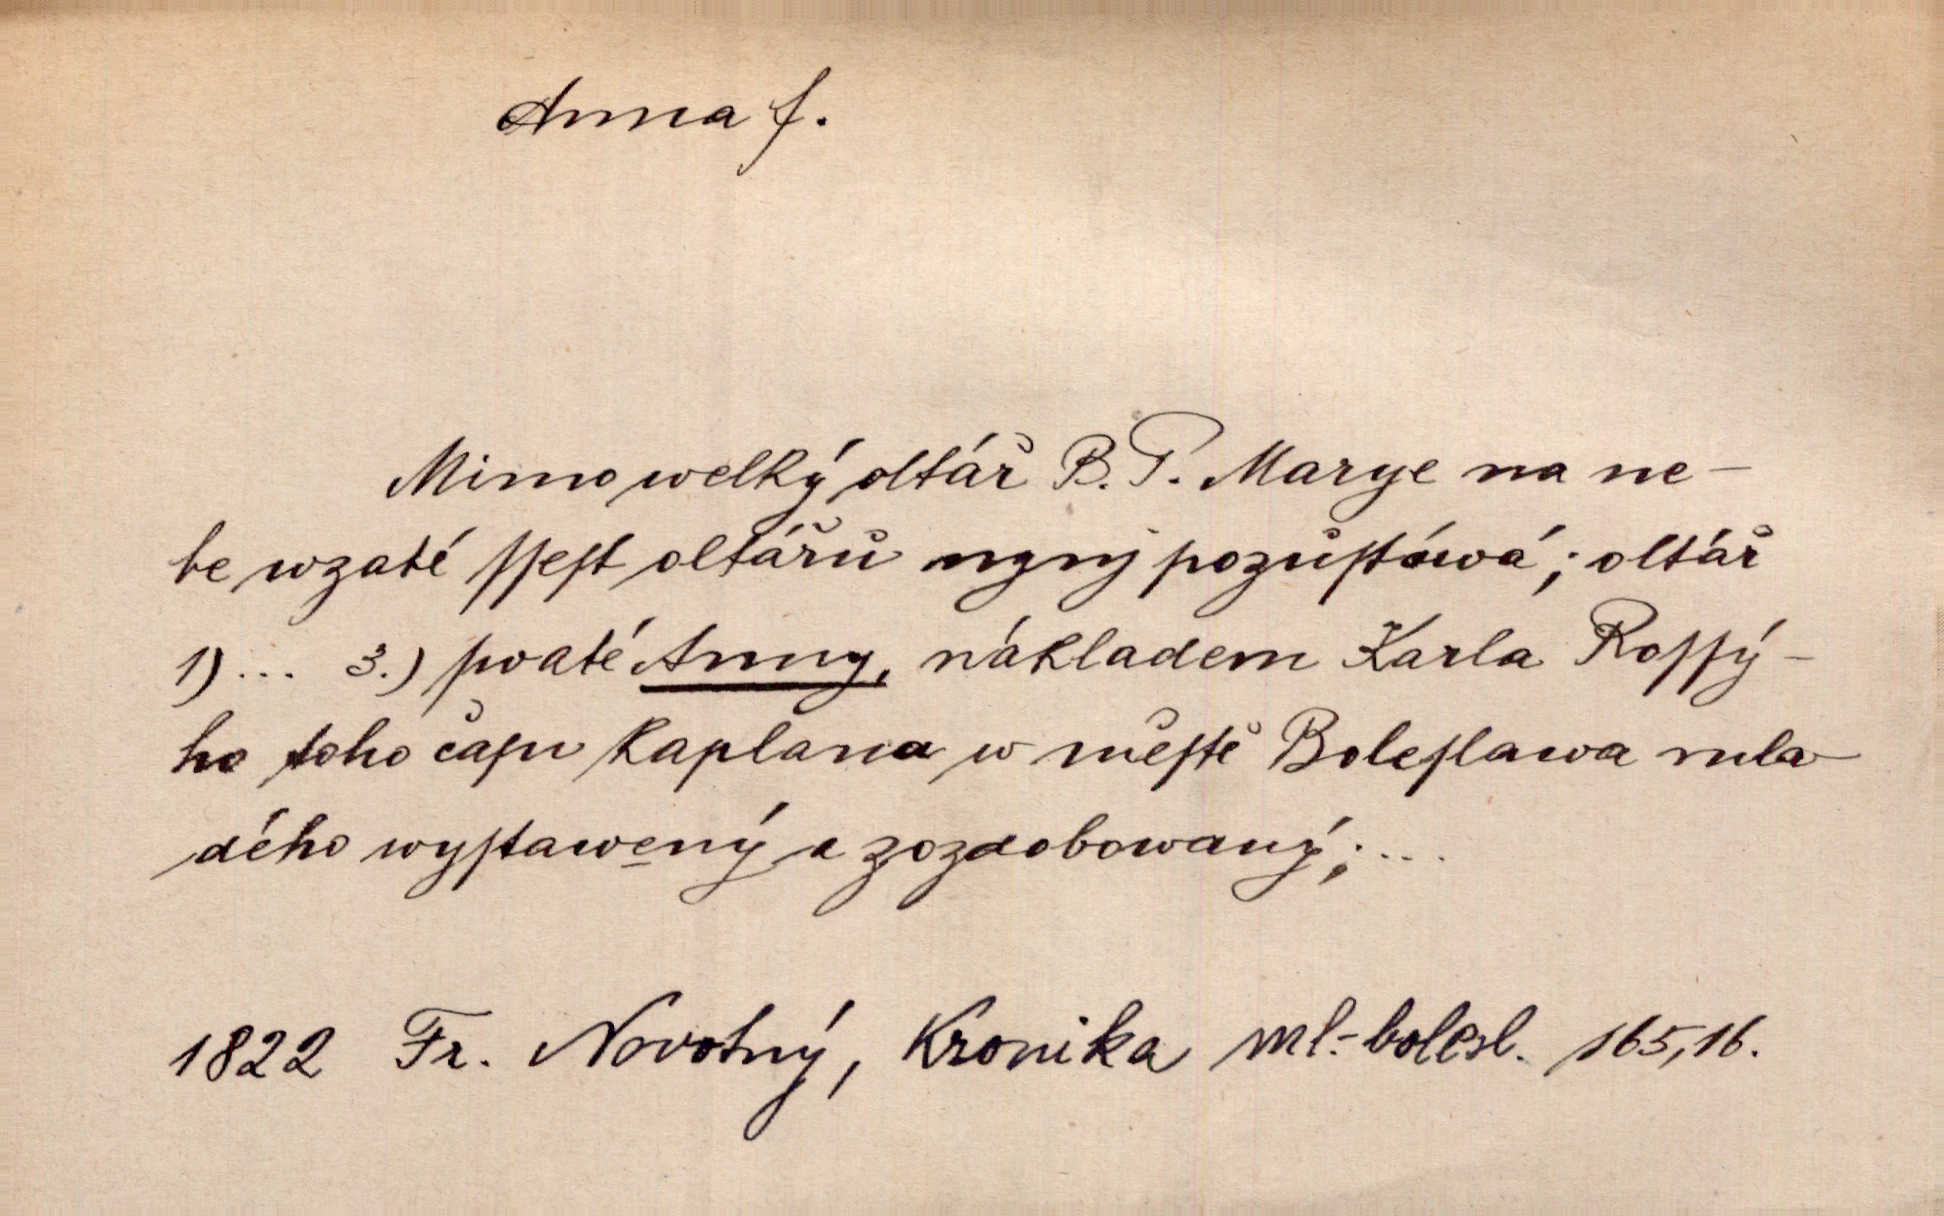 Anna f.
Mimo welký oltář B. P. Marye na ne-
be wzaté ſſeſt oltářů nynj pozůſtáwá; oltář
1) ... 3.) ſwaté Anny, nákladem Karla Roſſý-
ho toho čaſu kaplana w měſtě Boleſlawa mla-
dého wyſtawený a zozdobowaný; ...
1822 Fr. Novotný, Kronika ml.-bolesl. 165,16.